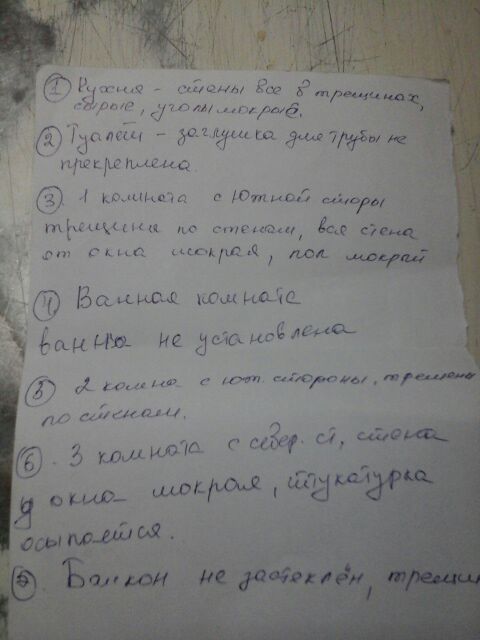 ① Кухня - стены все в трещинах,
сырые, углы мокрые.
② Туалет - заглушка для трубы не
прекреплена.
③. 1 комната с южной сторы
трещины по стенам, вся стена
от окна мокрая, пол мокрый
④ Ванная комната
ванна не установлена
⑤ 2 комна с юж. стороны, трещены
по стенам.
⑥. 3 комната с север. ст, стена
у окна мокрая, штукатурка
осыпается.
Балкон не застеклён, трещин